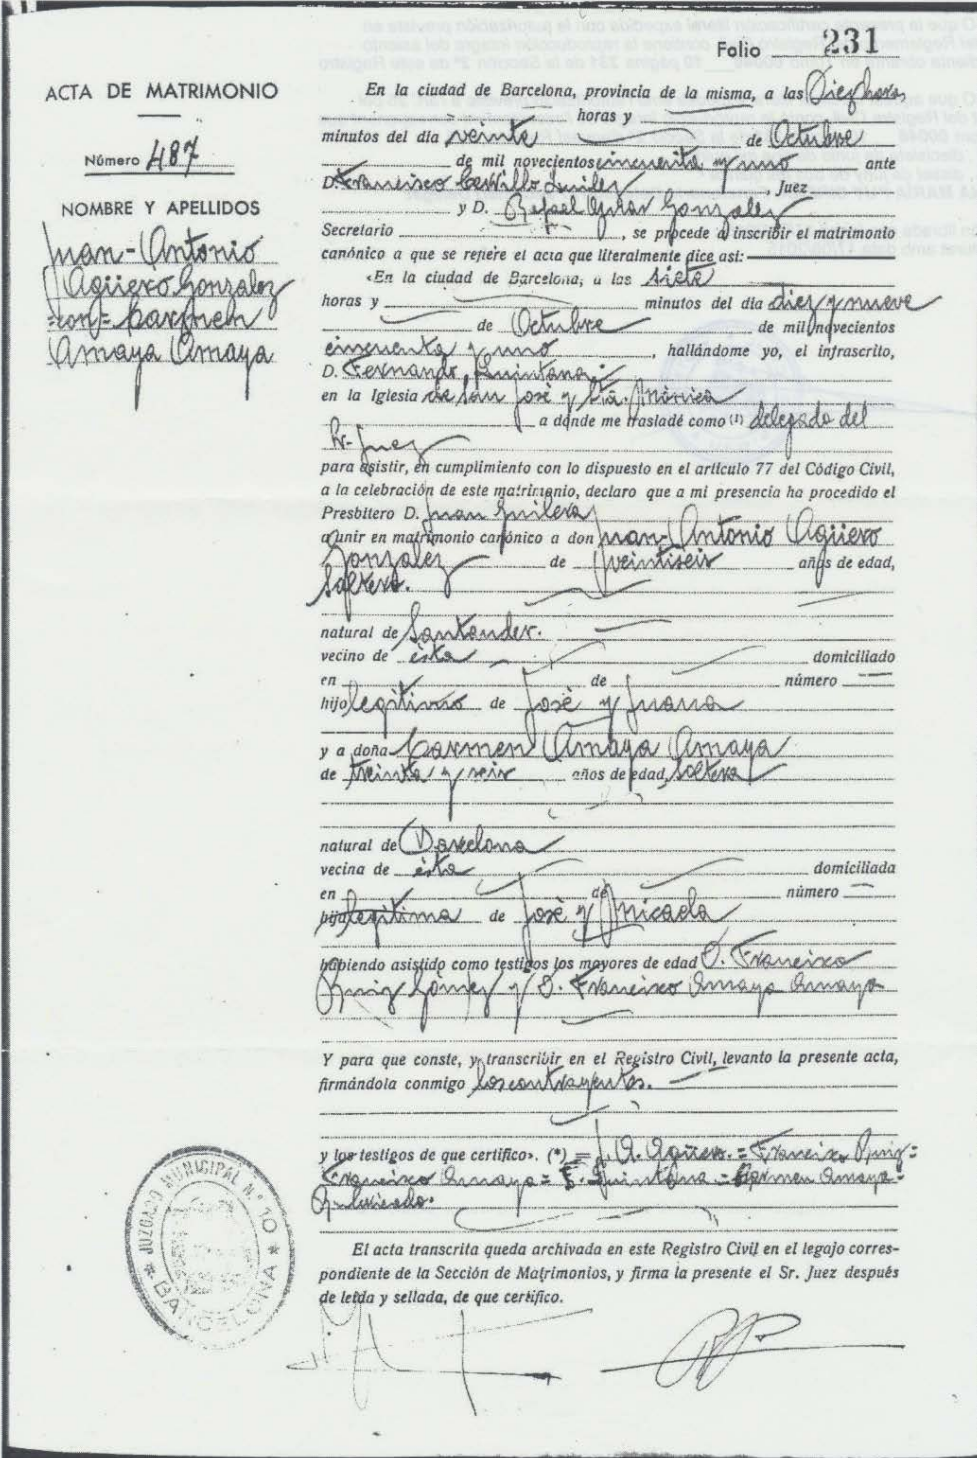 Folio 231
ACTA DE MATRIMONIO
Número 487
NOMBRE Y APELLIDOS
Juan-Antonio
Agüero Gonzalez
=con= Carmen
Amaya Amaya
En la ciudad de Barcelona, provincia de la misma, a las Diez horas
horas y
minutos del día veinte de Octubre
de mil novecientos cincuenta y uno ante
D. Francisco Juez
y D. Rafael Gonzalez
Secretario , se procede a inscribir el matrimonio
canónico a que se refiere el acta que literalmente dice así:
«En la ciudad de Barcelona, a las siete
horas y minutos del día diez y nueve
de Octubre de mil novecientos
cincuenta y uno , hallándome yo, el infrascrito,
D. Fernando Quintana
en la Iglesia de San José y Sta. Mónica
a donde me trasladé como (1) delegado del
Sr. Juez
para asistir, en cumplimiento con lo dispuesto en el artículo 77 del Código Civil,
a la celebración de este matrimonio, declaro que a mi presencia ha procedido el
Presbítero D. Juan
a unir en matrimonio canónico a don Juan-Antonio Agüero
Gonzalez de veintiseis años de edad,
soltero.
natural de Santander.
vecino de ésta domiciliado
en de número
hijo legitimo de José y Juana
y a doña Carmen Amaya Amaya
de treinta y seis años de edad, soltera
natural de Barcelona
vecina de ésta domiciliada
en de número
hija legitima de José y Micaela
habiendo asistido como testigos los mayores de edad D. Francisco
Ruiz Gómez y D. Francisco Amaya Amaya
Y para que conste, y transcribir en el Registro Civil, levanto la presente acta,
firmándola conmigo los contrayentes.
y los testigos de que certifico». (*) = J. A. Agüero. = Francisco Ruiz =
Francisco Amaya = F. Quintana = Carmen Amaya =
El acta transcrita queda archivada en este Registro Civil en el legajo corres-
pondiente de la Sección de Matrimonios, y firma la presente el Sr. Juez después
de leída y sellada, de que certifico.
JUZGADO MUNICIPAL N.º 10
* BARCELONA *